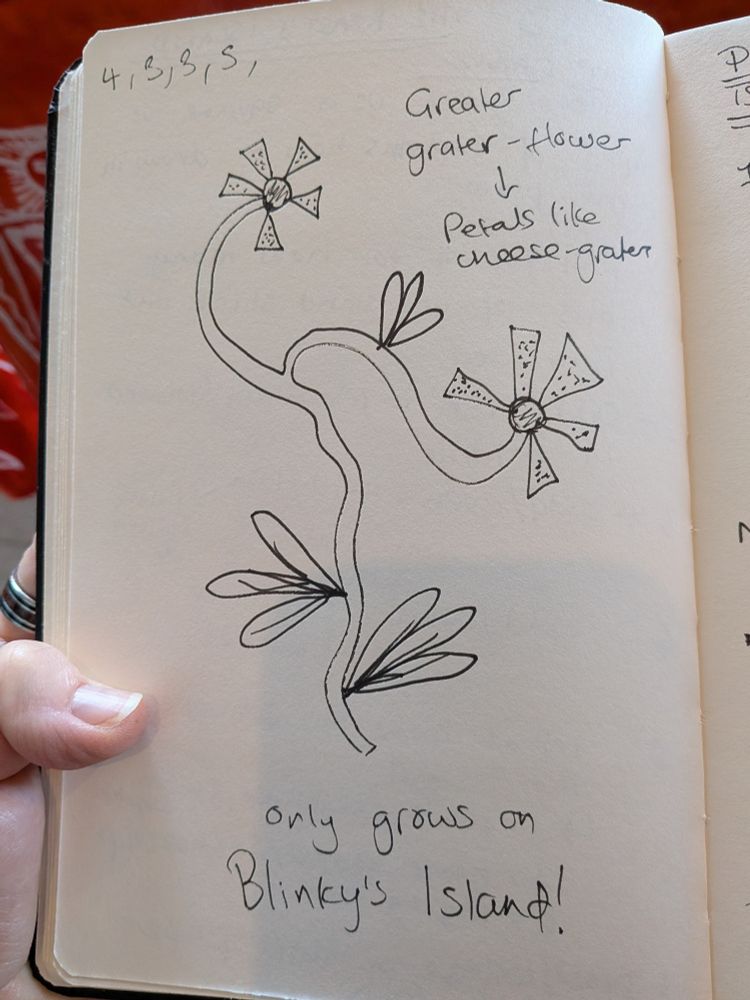 4, 3, 3, 5,
Greater
grater-flower
↓
Petals like
cheese-grater
only grows on
Blinky's Island!